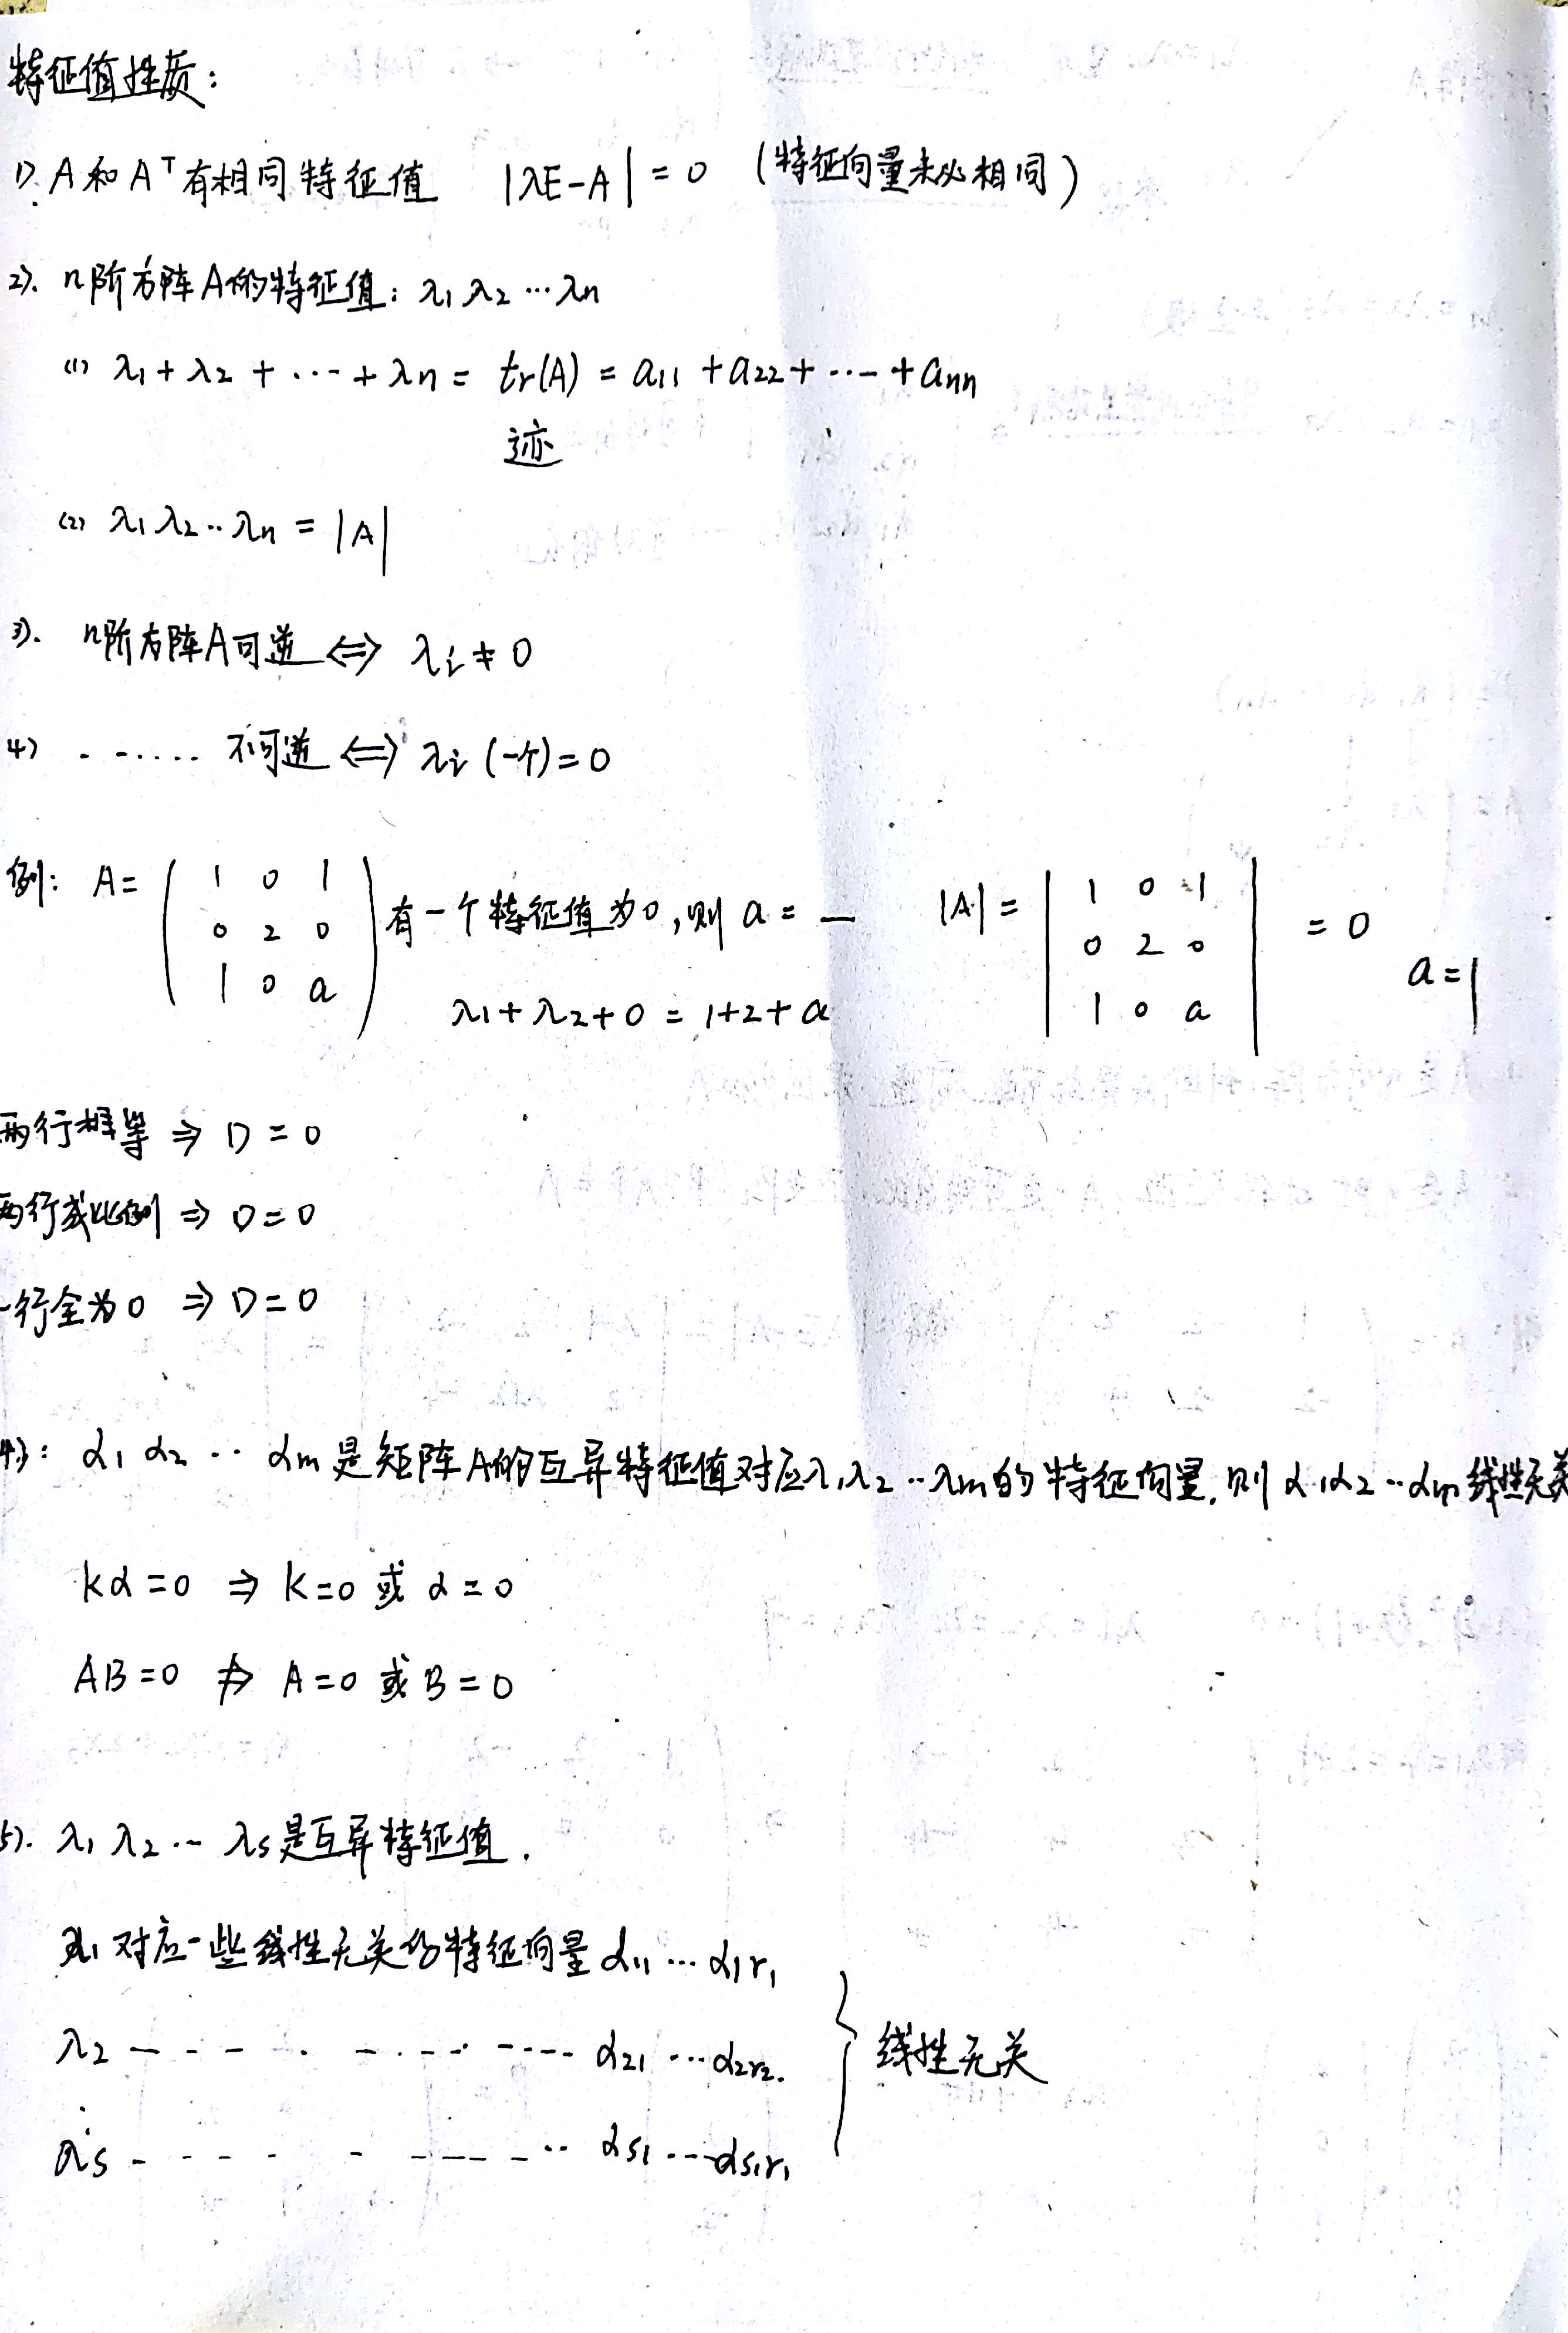 特征值性质：
1). A 和 Aᵀ 有相同特征值 |λE-A| = 0 (特征向量未必相同)
2). n阶方阵A的特征值: λ₁ λ₂ … λn
(1) λ₁ + λ₂ + … + λn = tr(A) = a₁₁ + a₂₂ + … + ann
迹
(2) λ₁ λ₂ ·· λn = |A|
3). n阶方阵A可逆 ⇔ λi ≠ 0
4) - - ····· 不可逆 ⇔ λi (一个) = 0
例: A = ( 1 0 1 有一个特征值为0, 则 a = — |A| = | 1 0 1 | = 0
0 2 0 0 2 0
1 0 a ) 1 0 a a = 1
λ₁ + λ₂ + 0 = 1+2+a
两行相等 ⇒ D = 0
两行成比例 ⇒ D = 0
一行全为0 ⇒ D = 0
4): α₁ α₂ ·· αm 是矩阵A的互异特征值对应λ₁λ₂ ·· λm的特征向量, 则 α₁α₂ ·· αm 线性无关
kα = 0 ⇒ k = 0 或 α = 0
AB = 0 ⇏ A = 0 或 B = 0
5). λ₁ λ₂ ·· λs 是互异特征值.
λ₁ 对应一些线性无关的特征向量 α₁₁ … α₁r₁
λ₂ - - - - - - - - - α₂₁ … α₂r₂. } 线性无关
λs - - - - - - - - - αs₁ … αs₁r₁